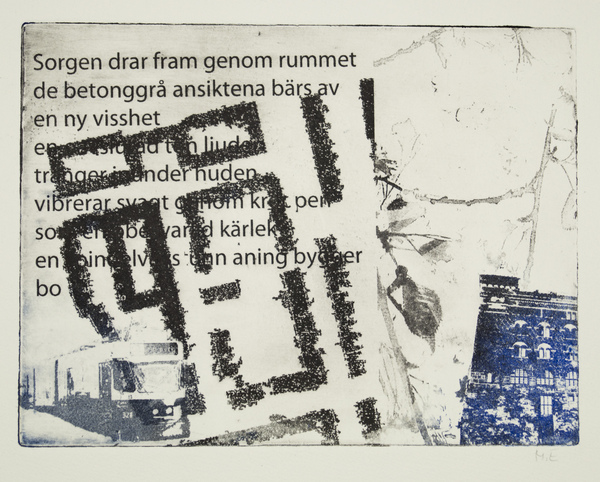 Sorgen drar fram genom rummet
de betonggrå ansiktena bärs av
en ny visshet
en ton ljuder
tränger in under huden
vibrerar svagt genom kroppen
som en obesvarad kärlek
en tunn aning bygger
bo
M.E